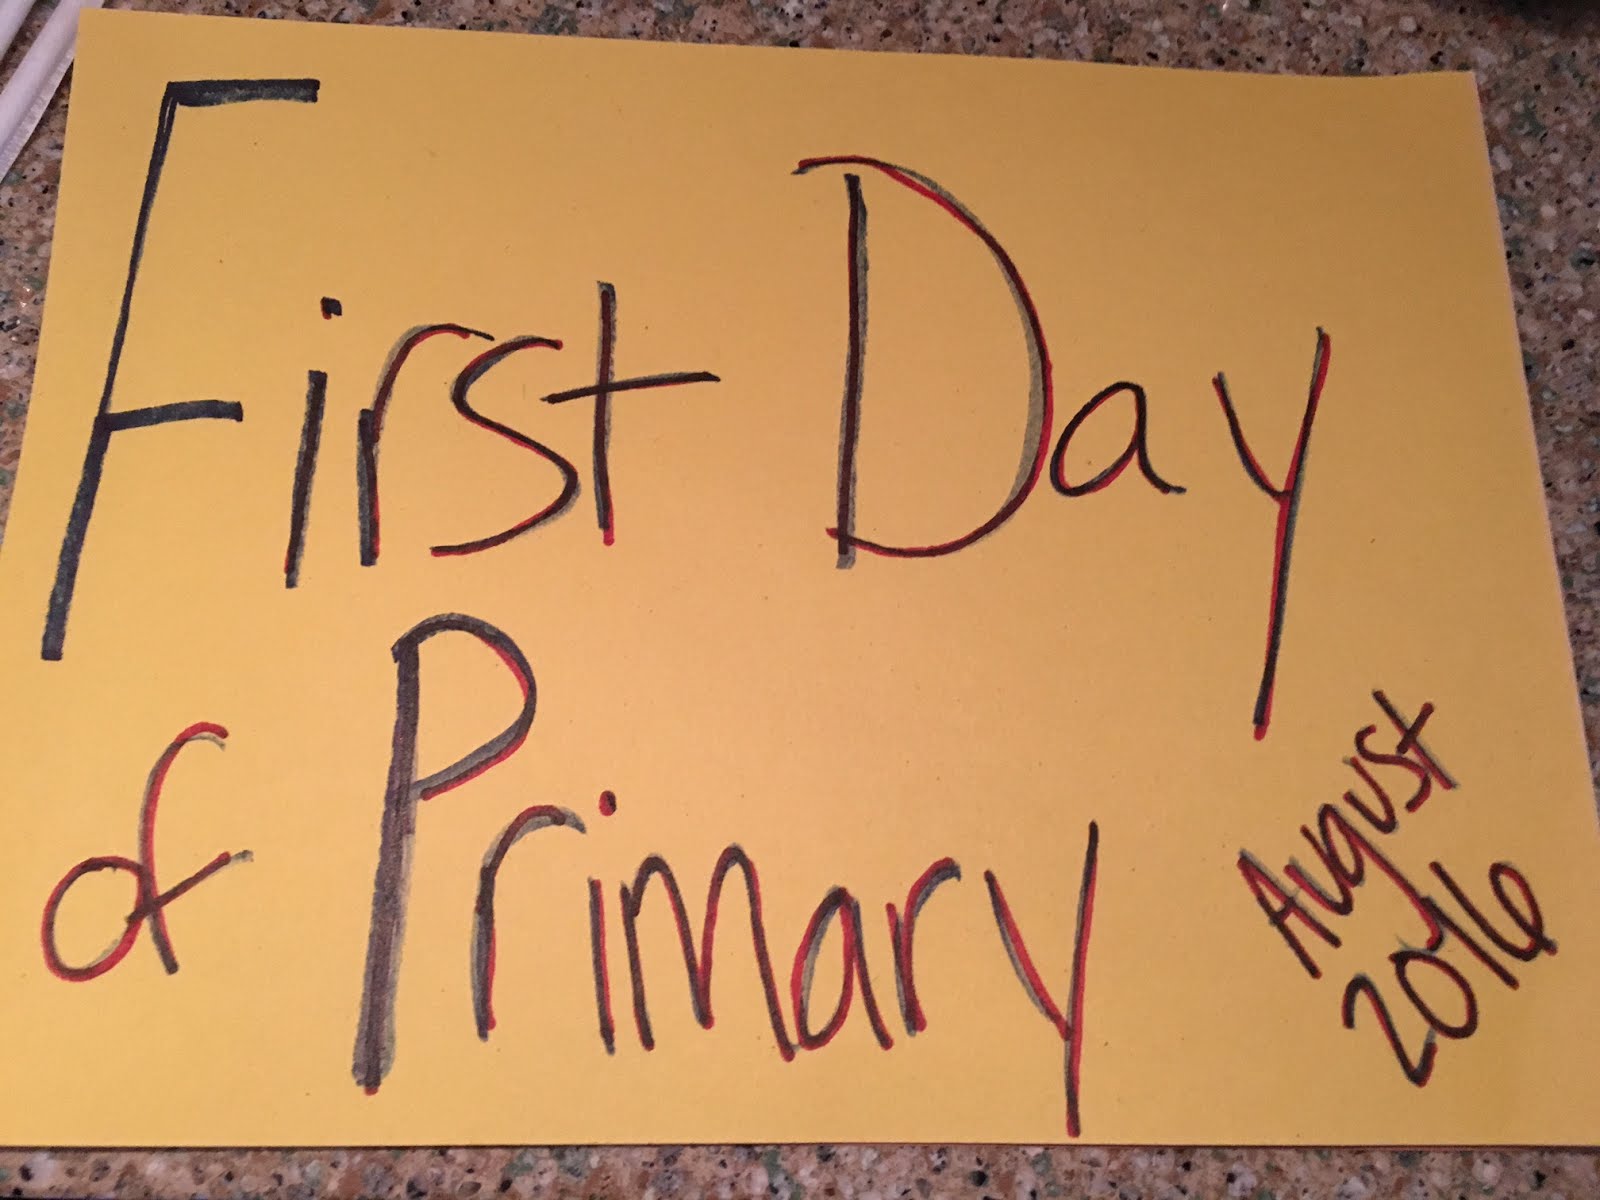 First Day
of Primary
August
2016